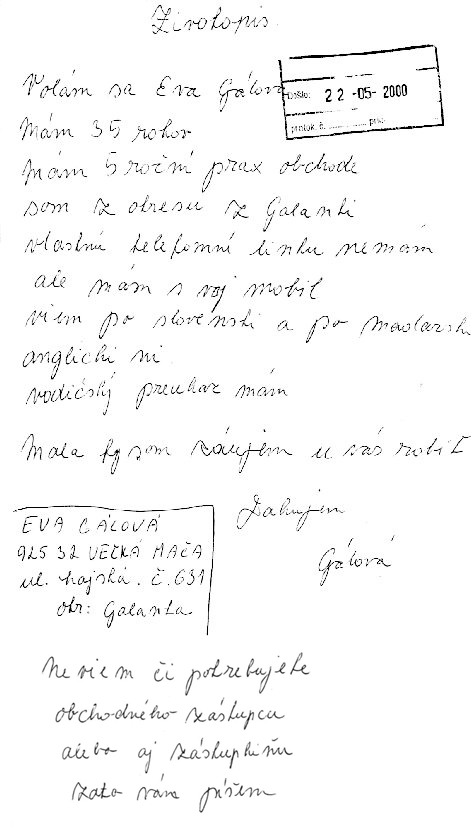 Životopis
Volám sa Eva Gálová
Došlo: 22 -05- 2000
protok. č. ............ príl.
Mám 35 rokov
mám 5 ročni prax obchode
som z okresu z Galanti
vlastnú telefomní linku nemám
ale mám s voj mobil
viem po slovenski a po madarski
anglicki ni
vodičský preukaz mám
Mala by som záujem u vás robiť
Dakujem
Gálová
EVA GÁLOVÁ
925 32 VEĽKÁ MAČA
ul. hajská. č. 631
okr: Galanta
Ne viem či potrebujete
obchodného zástupcu
alebo aj zástupkiňu
zato vám píšem